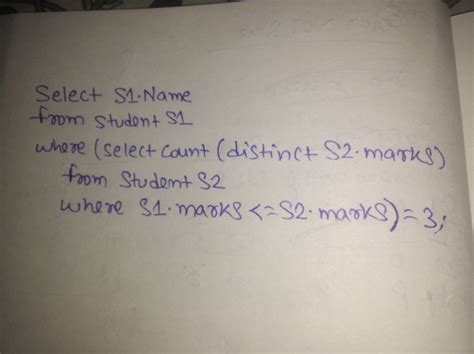 Select S1.Name
from Student S1
where (select count (distinct S2.marks)
from Student S2
where S1.marks <= S2.marks) = 3;